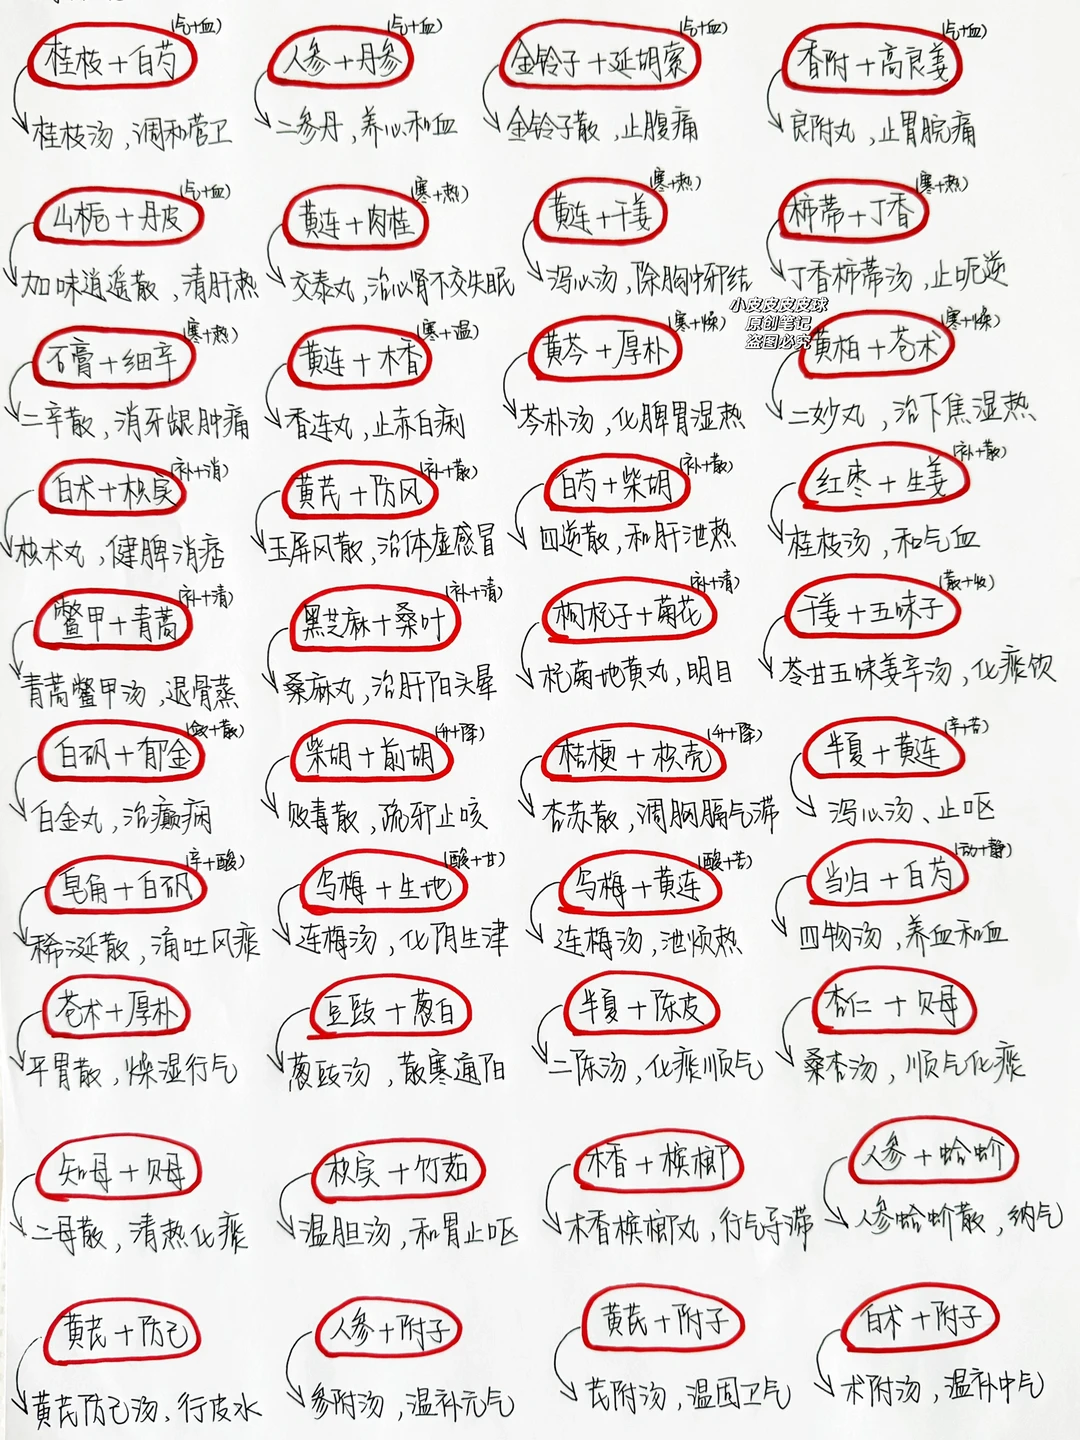 (气+血) (气+血) (气+血) (气+血)
桂枝+白芍 人参+丹参 金铃子+延胡索 香附+高良姜
桂枝汤,调和营卫 二参丹,养心和血 金铃子散,止腹痛 良附丸,止胃脘痛
(气+血) (寒+热) (寒+热) (寒+热)
山栀+丹皮 黄连+肉桂 黄连+干姜 柿蒂+丁香
加味逍遥散,清肝热 交泰丸,治心肾不交失眠 泻心汤,除胸中邪结 丁香柿蒂汤,止呃逆
小皮皮皮皮球
原创笔记
盗图必究
(寒+热) (寒+温) (寒+燥) (寒+燥)
石膏+细辛 黄连+木香 黄芩+厚朴 黄柏+苍术
二辛散,消牙龈肿痛 香连丸,止赤白痢 芩朴汤,化脾胃湿热 二妙丸,治下焦湿热
(补+消) (补+散) (补+散) (补+散)
白术+枳实 黄芪+防风 白芍+柴胡 红枣+生姜
枳术丸,健脾消痞 玉屏风散,治体虚感冒 四逆散,和肝泄热 桂枝汤,和气血
(补+清) (补+清) (补+清) (散+收)
鳖甲+青蒿 黑芝麻+桑叶 枸杞子+菊花 干姜+五味子
青蒿鳖甲汤,退骨蒸 桑麻丸,治肝阳头晕 杞菊地黄丸,明目 苓甘五味姜辛汤,化痰饮
(敛+散) (升+降) (升+降) (辛+苦)
白矾+郁金 柴胡+前胡 桔梗+枳壳 半夏+黄连
白金丸,治癫痫 败毒散,疏邪止咳 杏苏散,调胸膈气滞 泻心汤、止呕
(辛+酸) (酸+甘) (酸+苦) (动+静)
皂角+白矾 乌梅+生地 乌梅+黄连 当归+白芍
稀涎散,涌吐风痰 连梅汤,化阴生津 连梅汤,泄烦热 四物汤,养血和血
苍术+厚朴 豆豉+葱白 半夏+陈皮 杏仁+贝母
平胃散,燥湿行气 葱豉汤,散寒通阳 二陈汤,化痰顺气 桑杏汤,顺气化痰
知母+贝母 枳实+竹茹 木香+槟榔 人参+蛤蚧
二母散,清热化痰 温胆汤,和胃止呕 木香槟榔丸,行气导滞 人参蛤蚧散,纳气
黄芪+防己 人参+附子 黄芪+附子 白术+附子
黄芪防己汤,行皮水 参附汤,温补元气 芪附汤,温固卫气 术附汤,温补中气